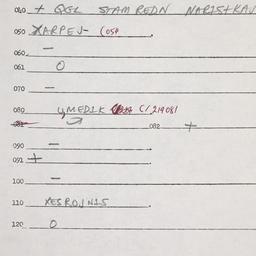 010 + QGL STAM REDN NARIS+KAV
050 XARPEJ- (050
060 —
061 O
070 —
080 YMEDIK C/ 214081
081 082 +
090 —
091 +
100 —
110 XESROJN15
120 O